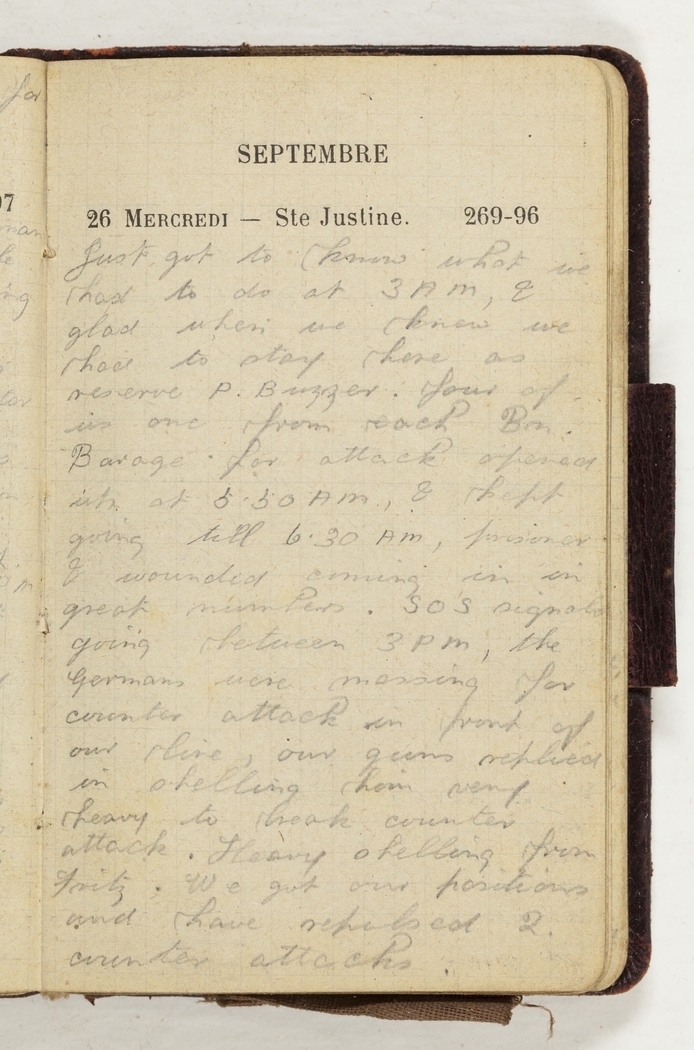 SEPTEMBRE
26 MERCREDI — Ste Justine. 269-96
Just got to know what we
had to do at 3 AM, &
glad when we knew we
had to stay here as
reserve P. Buzzer. four of
us one from each Bn.
Barage for attack opened
at 5.50 AM, & kept
going till 6.30 AM, prisoner
& wounded coming in in
great numbers. SOS signals
going between 3 PM, the
Germans were massing for
counter attack in front of
our line, our guns replied
in shelling him very
heavy to break counter
attack. Heavy shelling from
Fritz. We got our positions
and have repulsed 2
counter attacks.
for